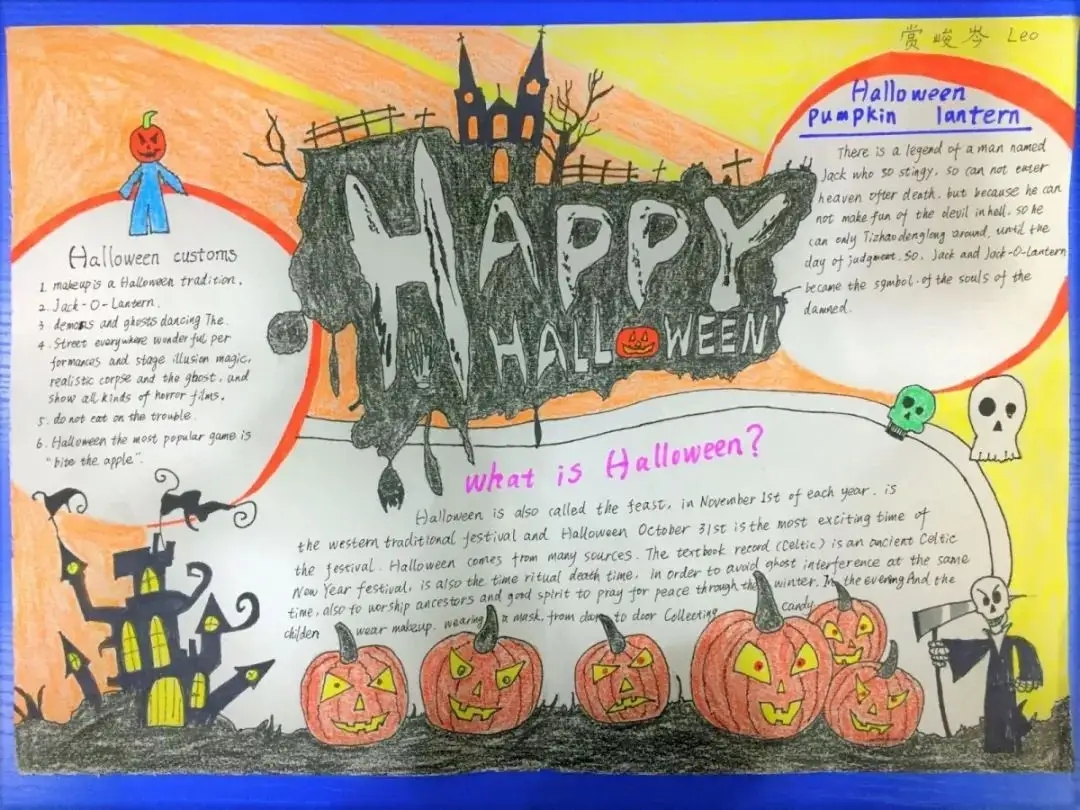 赏峻岑 Leo
HAPPY
HALLOWEEN
Halloween customs
1. makeup is a Halloween tradition.
2. Jack-O-Lantern.
3 demons and ghosts dancing The.
4. Street everywhere wonderful per
formances and stage illusion magic,
realistic corpse and the ghost, and
show all kinds of horror films.
5. do not eat on the trouble.
6. Halloween the most popular game is
"bite the apple".
Halloween
pumpkin lantern
There is a legend of a man named
Jack who so stingy, so can not enter
heaven ofter death, but because he can
not make fun of the devil in hell, so he
can only Tizhaodenglong around, until the
day of judgment. So, Jack and Jack-O-Lantern
became the symbol of the souls of the
damned.
what is Halloween?
Halloween is also called the feast, in November 1st of each year. is
the western traditional festival and Halloween October 31st is the most exciting time of
the festival. Halloween comes from many sources. The textbook record (Celtic) is an ancient Celtic
New Year festival, is also the time ritual death time, in order to avoid ghost interference at the same
time, also to worship ancestors and good spirit to pray for peace through the winter. In the evening And the
childen wear makeup. wearing a mask, from door to door Collecting candy